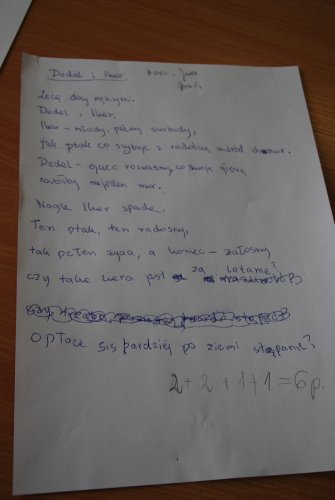 Dedal i Ikar
Lecą dwaj mężczyźni.
Dedal i Ikar,
Ikar - młody, pełny swobody,
jak ptak co szybuje z radością, wśród chmur.
Dedal - ojciec rozważny, co swoją głową
rozbiłby niejeden mur.
Nagle Ikar spada.
Ten ptak, ten radosny,
tak pełen życia, a koniec - żałosny
czy taka kara jest za latanie?
opłaca się bardziej po ziemi stąpanie?
2 + 2 + 1 + 1 = 6 p.